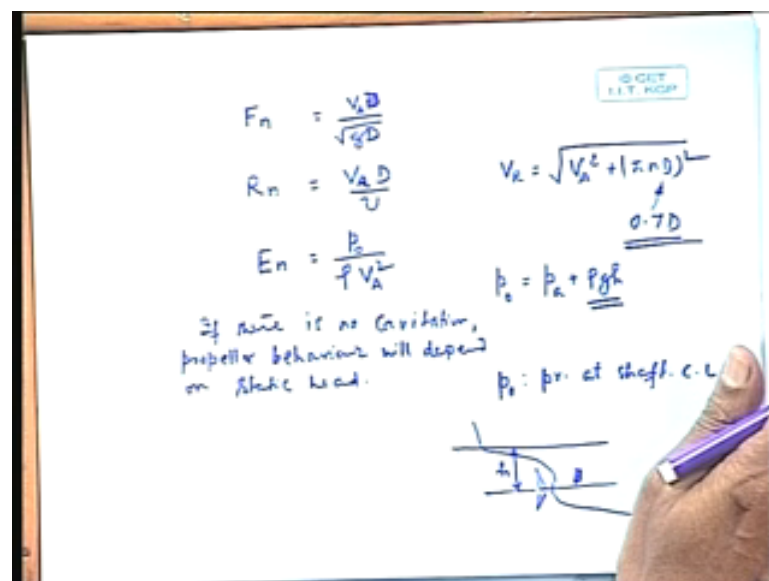 © CET
I.I.T. KGP
Fn = VA D / √gD
Rn = VA D / υ
En = p₀ / ρ VA²
If there is no Cavitation,
propeller behaviour will depend
on static head.
VR = √VA² + (π n D)²
0.7D
p₀ = pa + ρgh
p₀ : pr. at shaft. C.L
h